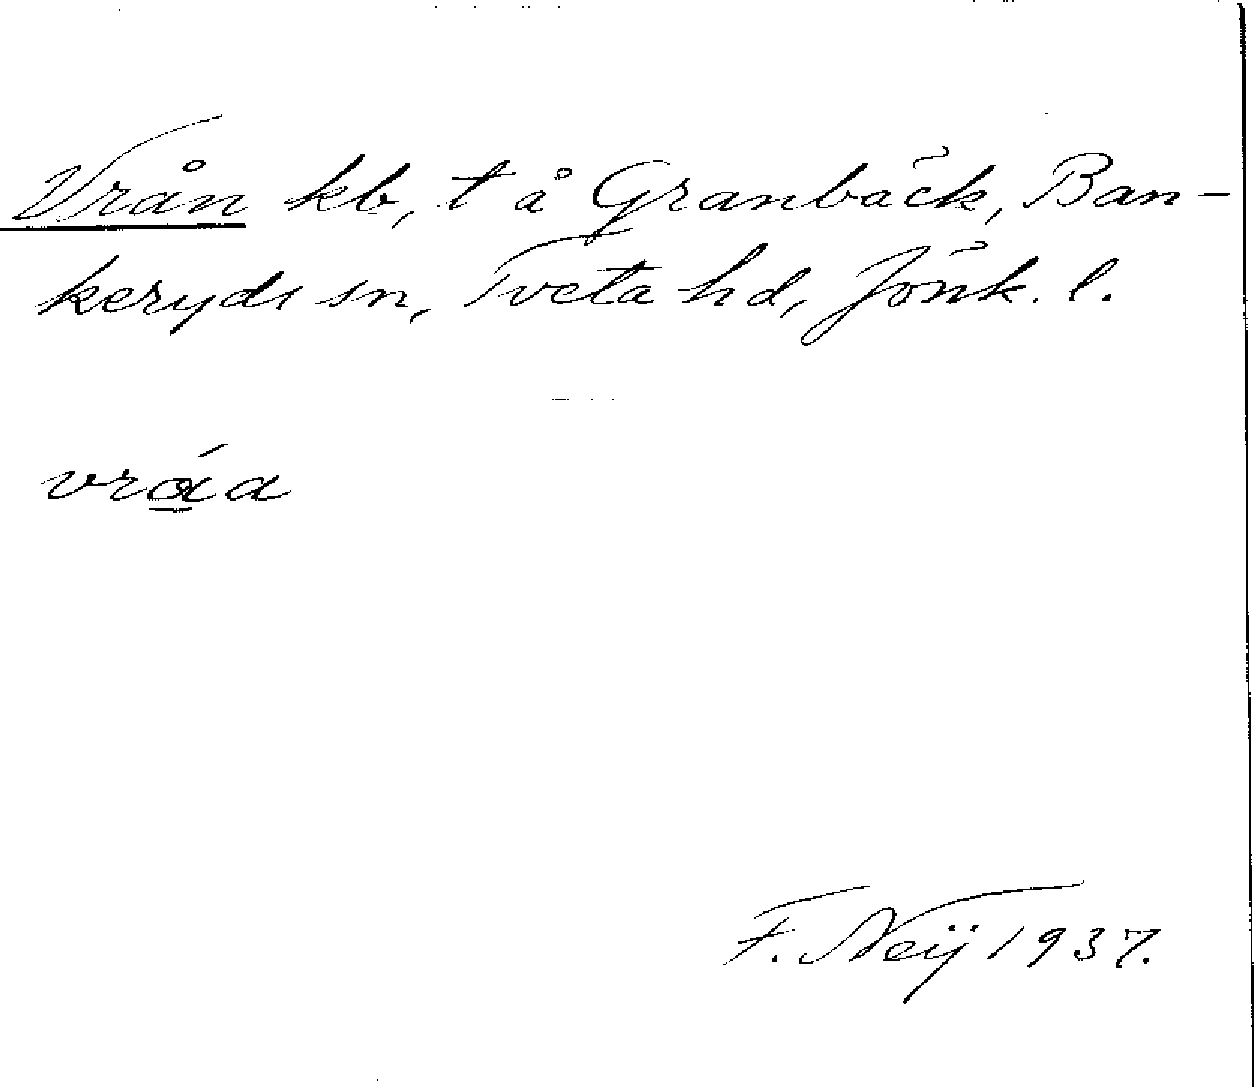 Vrån kb, t å Granbäck, Ban-
keryds sn, Tveta hd, Jönk. l.
vrá̱a
F. Neij 1937.